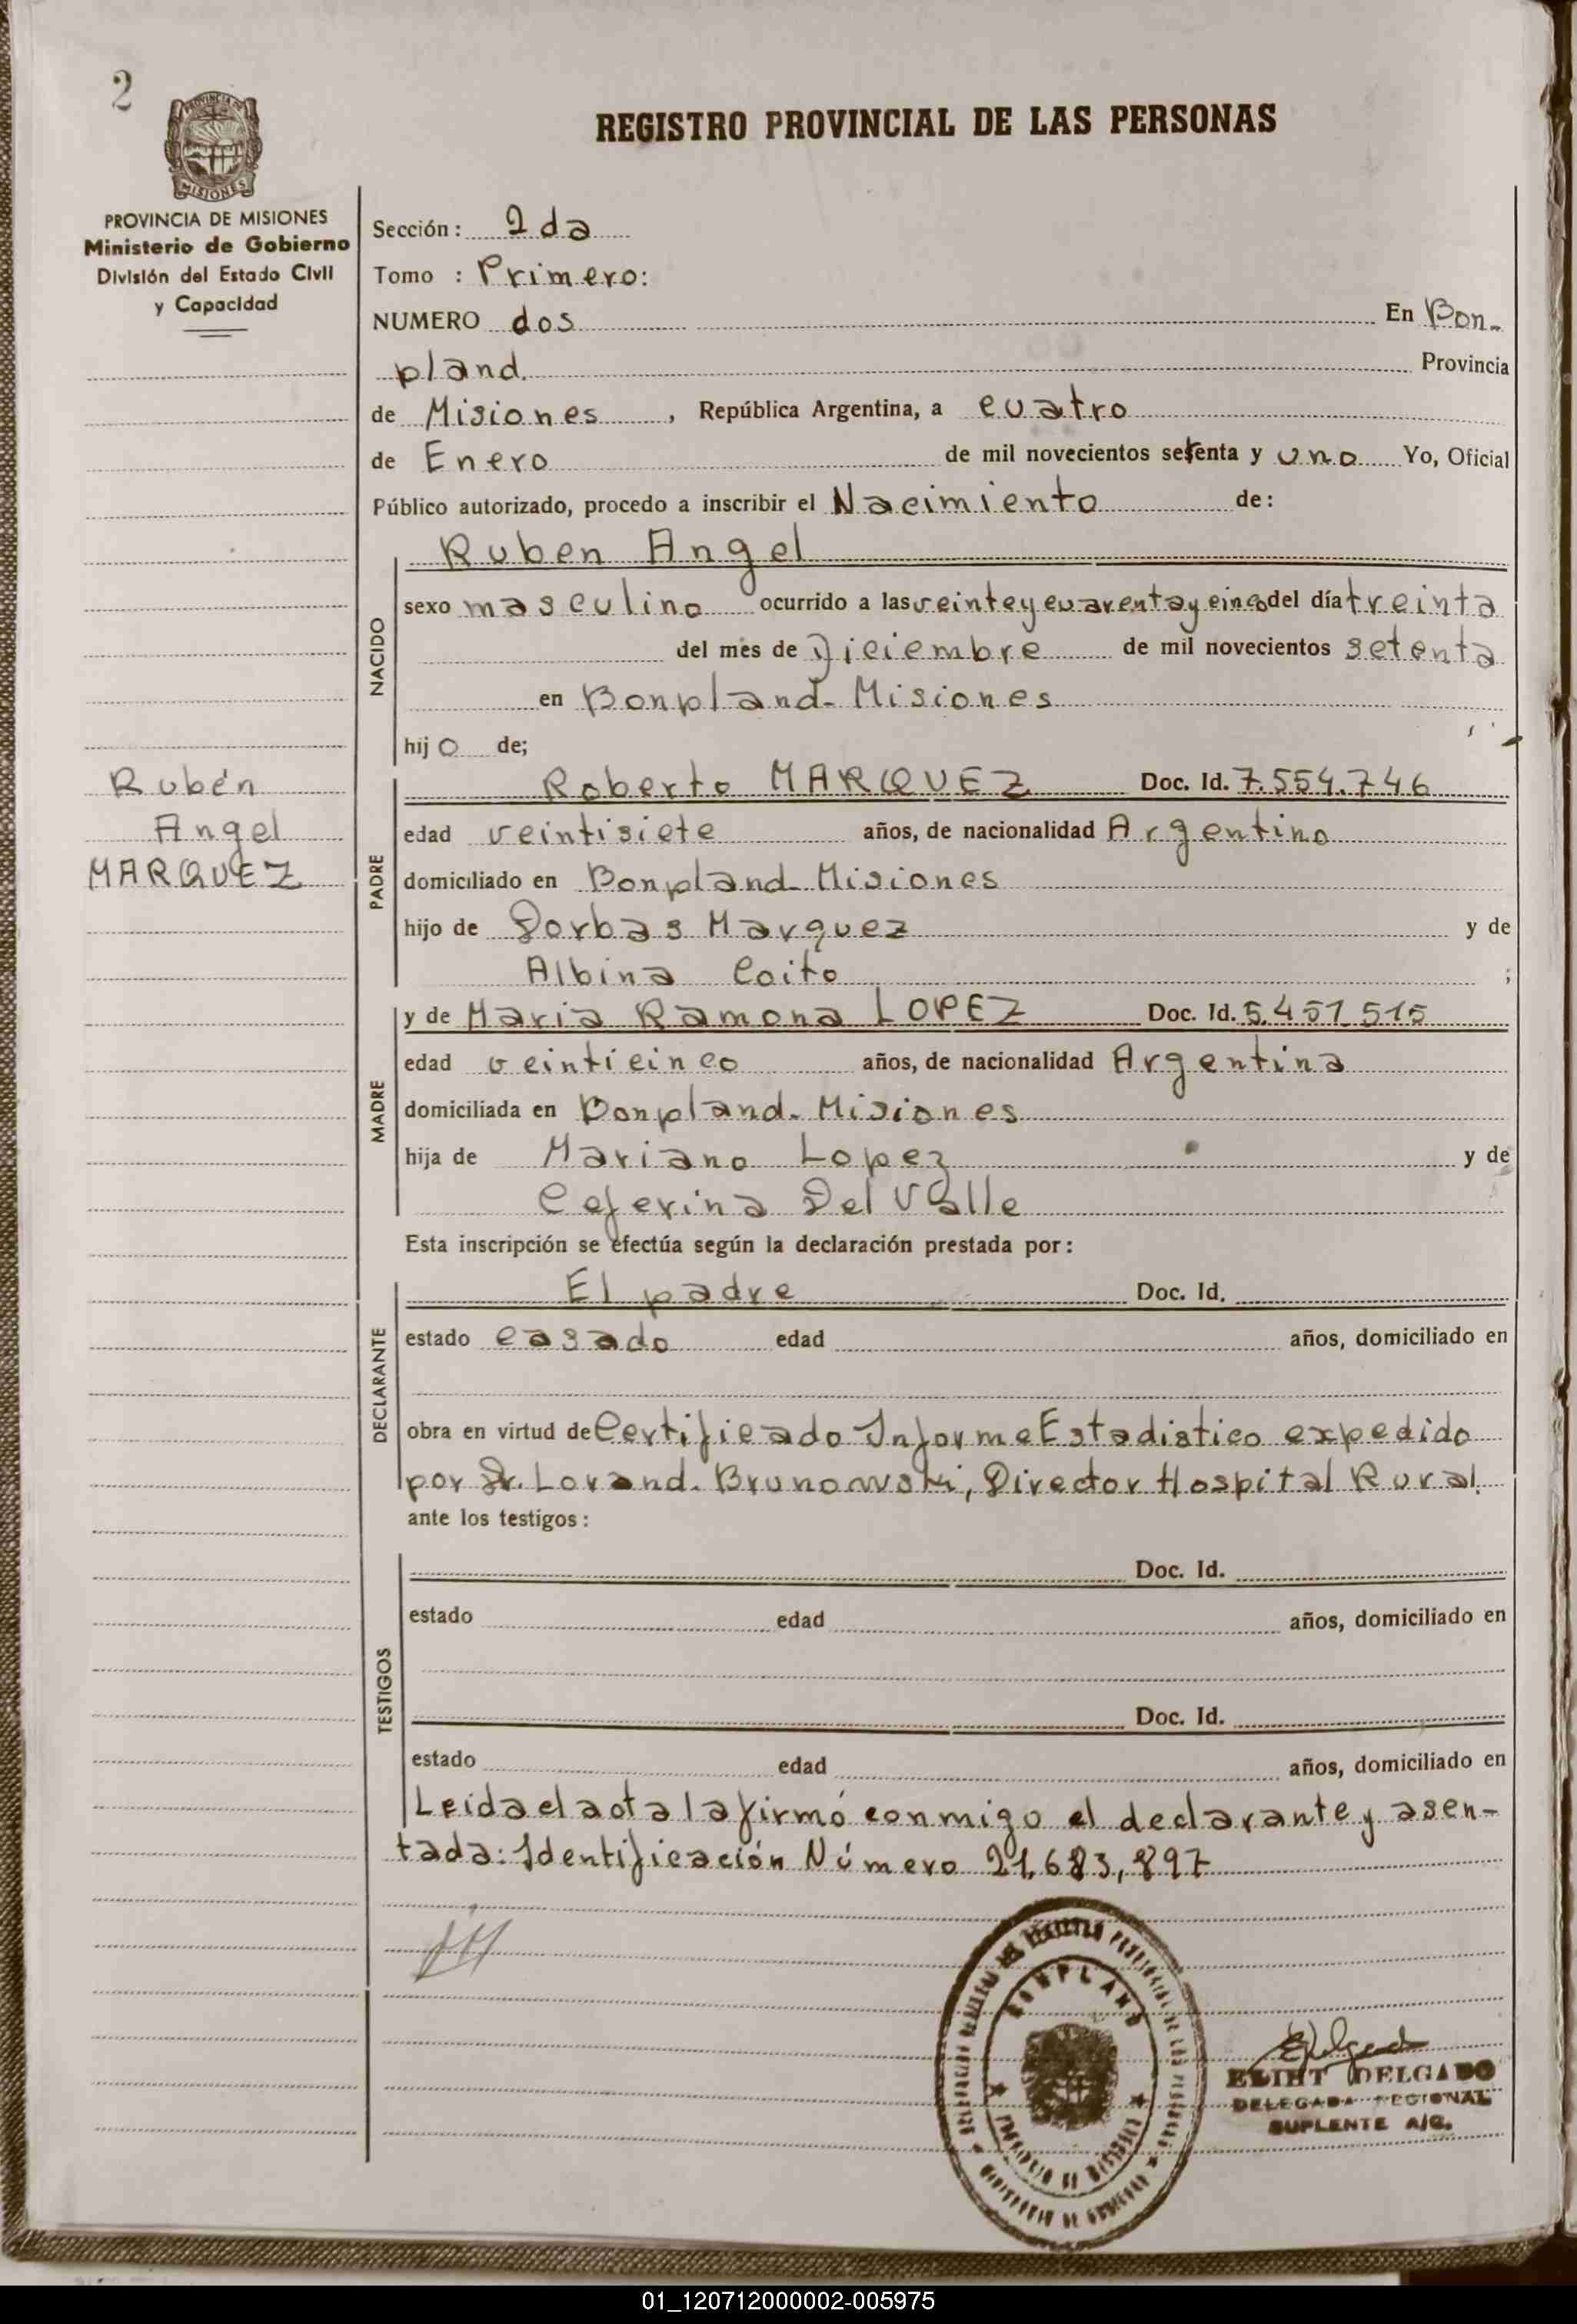 2
REGISTRO PROVINCIAL DE LAS PERSONAS
PROVINCIA DE
MISIONES
PROVINCIA DE MISIONES
Ministerio de Gobierno
División del Estado Civil
y Capacidad
Sección: 2da
Tomo : Primero:
NUMERO dos En Bon-
pland. Provincia
de Misiones , República Argentina, a cuatro
de Enero de mil novecientos setenta y uno Yo, Oficial
Público autorizado, procedo a inscribir el Nacimiento de:
Ruben Angel
NACIDO
sexo masculino ocurrido a las veinte y cuarenta y cinco del día treinta
del mes de Diciembre de mil novecientos setenta
en Bonpland- Misiones
hijo de;
Rubén
Angel
MARQUEZ
PADRE
Roberto MARQUEZ Doc. Id. 7.554.746
edad veintisiete años, de nacionalidad Argentino
domiciliado en Bonpland- Misiones
hijo de Dorbas Marquez y de
Albina Coito ;
MADRE
y de Maria Ramona LOPEZ Doc. Id. 5.451.515
edad veinticinco años, de nacionalidad Argentina
domiciliada en Bonpland- Misiones
hija de Mariano Lopez y de
Ceferina Del Valle
Esta inscripción se efectúa según la declaración prestada por:
DECLARANTE
El padre Doc. Id.
estado casado edad años, domiciliado en
obra en virtud de Certificado Informe Estadistico expedido
por Dr. Lorand. Brunowski, Director Hospital Rural.
ante los testigos:
TESTIGOS
Doc. Id.
estado edad años, domiciliado en
Doc. Id.
estado edad años, domiciliado en
Leida el acta la firmó conmigo el declarante y asen-
tada: Identificación Número 21.683,897
BONPLAND
MINISTERIO DE GOBIERNO
ELIHT DELGADO
DELEGADA REGIONAL
SUPLENTE A/C.
01_120712000002-005975